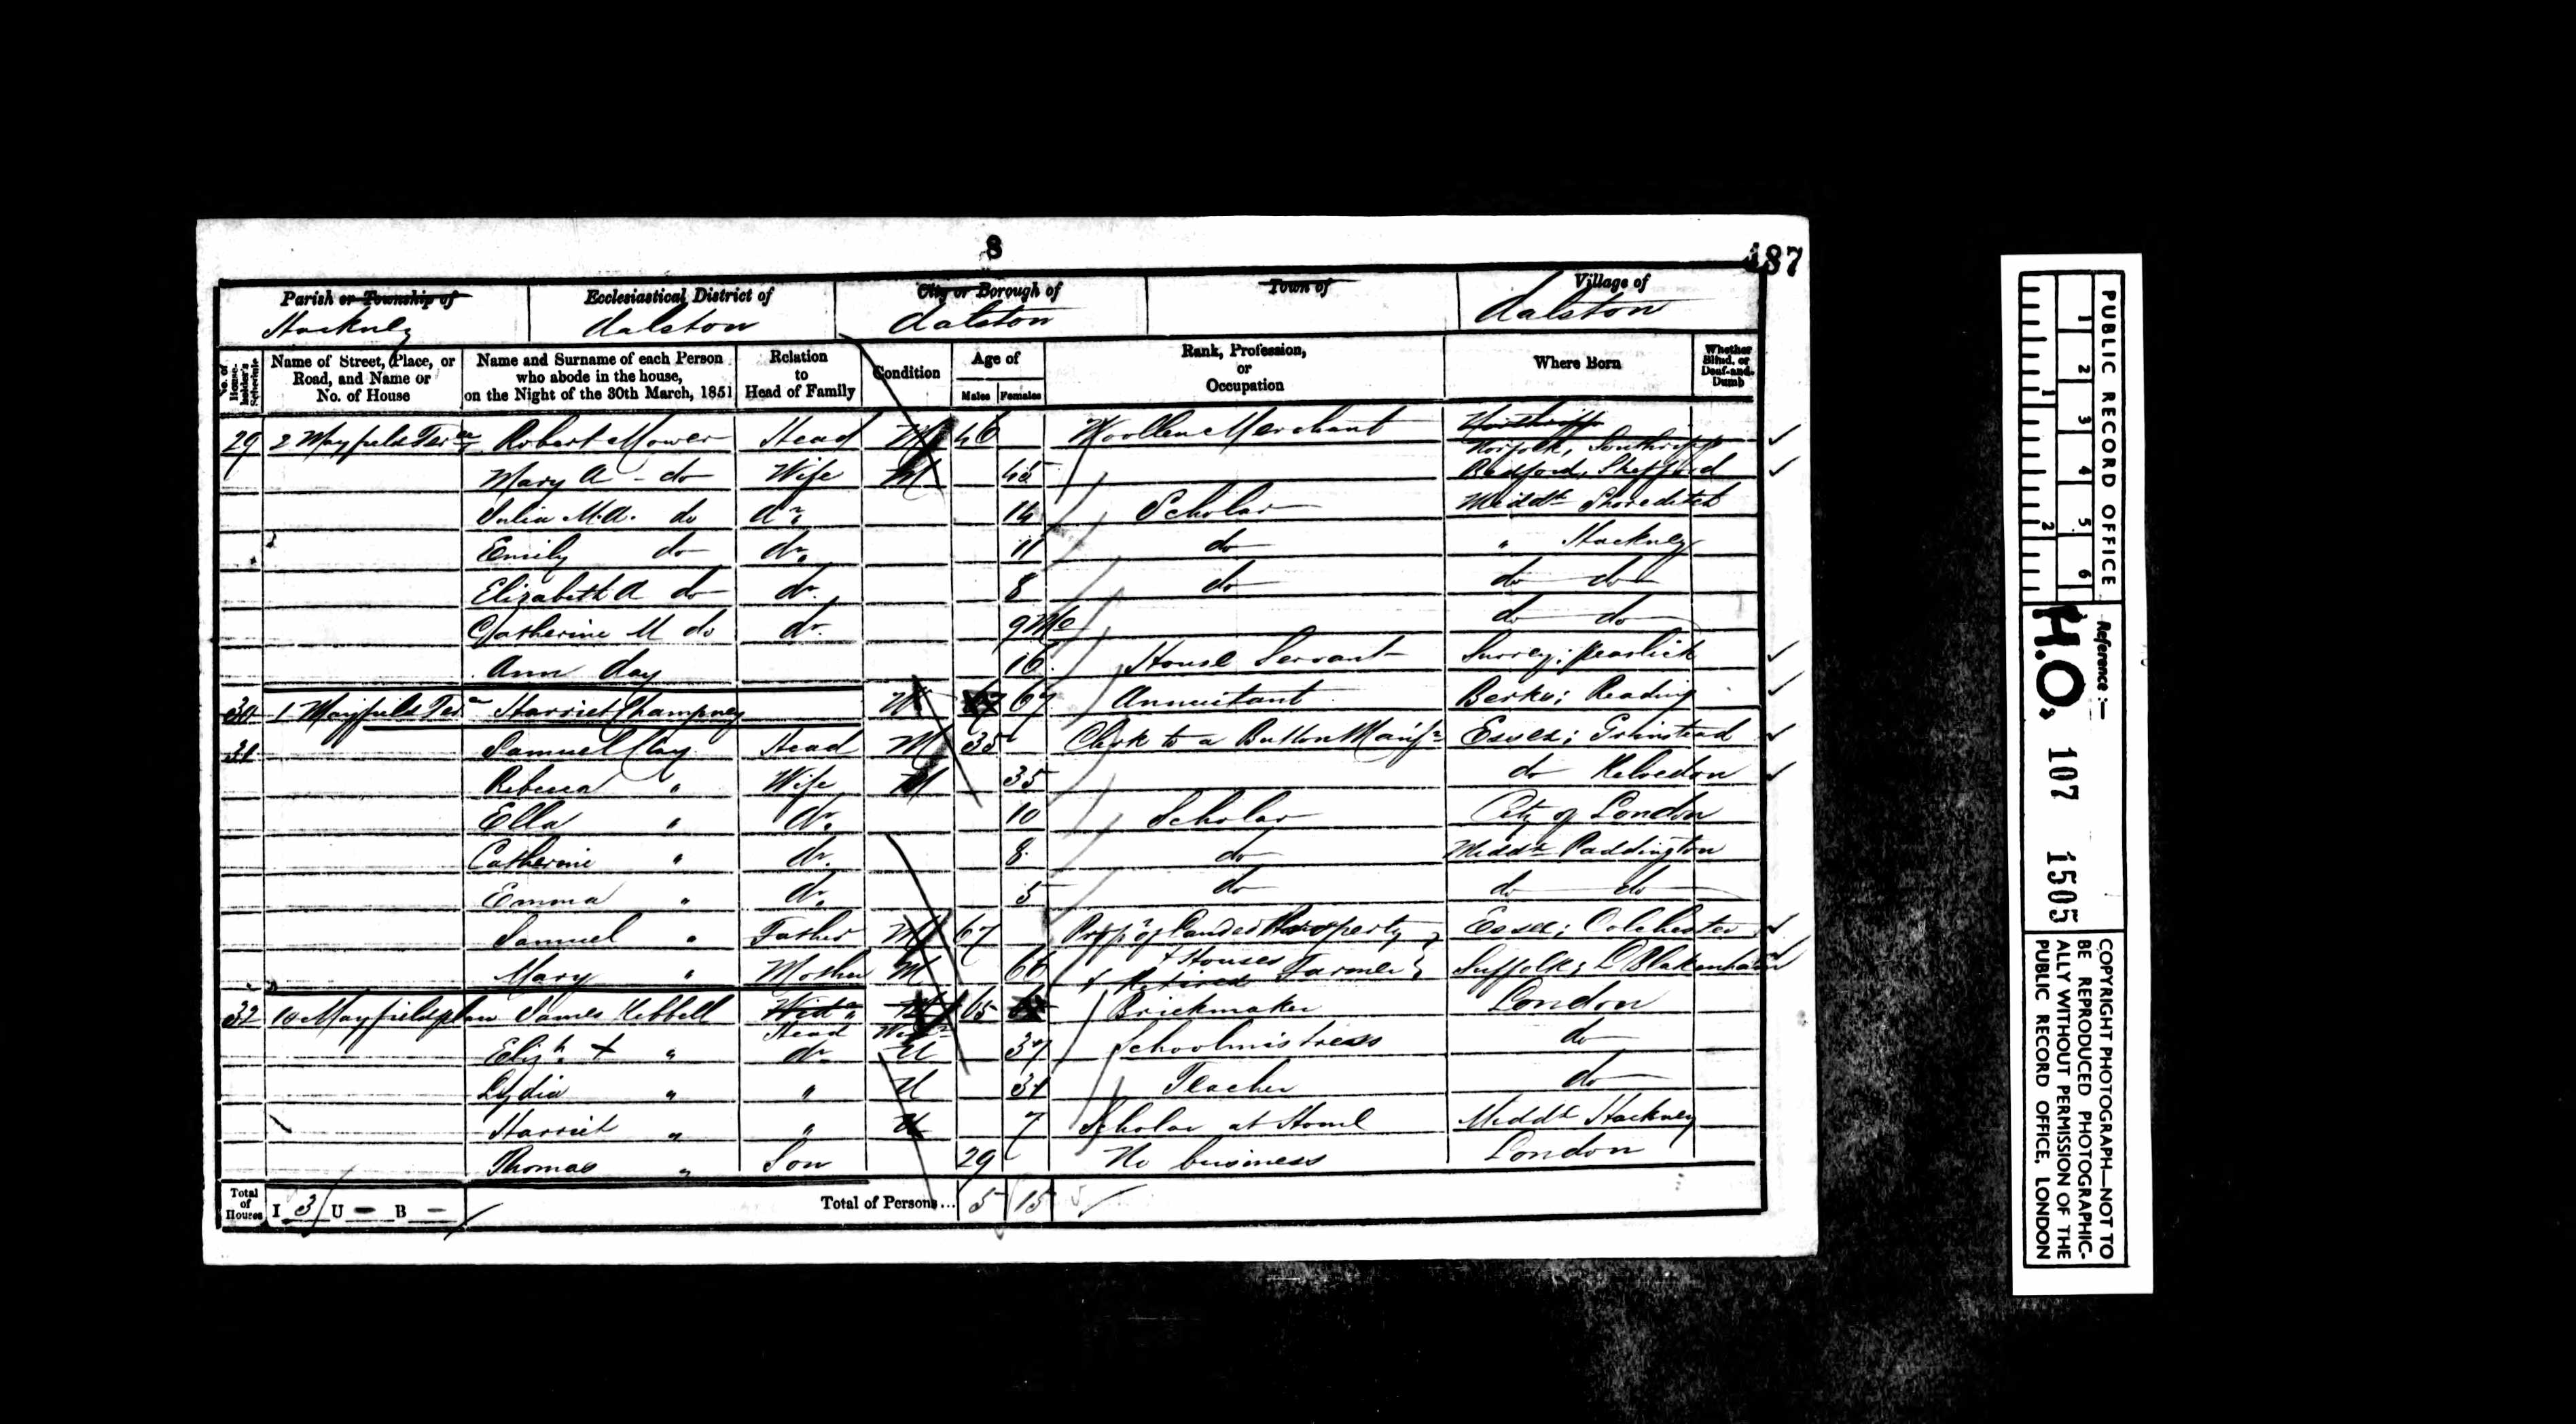 8
187
Parish or Township of Ecclesiastical District of City or Borough of Town of Village of
Hackney Dalston Dalston Dalston
No. of House-holder's Schedule Name of Street, Place, or Road, and Name or No. of House Name and Surname of each Person who abode in the house, on the Night of the 30th March, 1851 Relation to Head of Family Condition Age of Males Females Rank, Profession, or Occupation Where Born Whether Blind, or Deaf-and-Dumb
29 2 Mayfield Terce Robert Mower Head M 46 Woollen Merchant Norfolk,
Mary A do Wife M 45 Bedford, Shefford
Julia M.A. do dr. 14 Scholar Middx Shoreditch
Emily do dr. 11 do " Hackney
Elizabeth A do dr. 8 do do do
Catherine M do dr. 9 Mo do do
Ann Day 16 House Servant Surrey;
30 1 Mayfield Terr Harriet Champney 67 Annuitant Berks; Reading
31 Samuel Clay Head M 35 Clerk to a Button Manfr Essex; Grinstead
Rebecca " Wife M 35 do Kelvedon
Ella " dr. 10 Scholar City of London
Catherine " dr. 8 do Middx Paddington
Emma " dr. 5 do do do
Samuel " Father M 67 Propr of Landed Property Essex; Colchester
Mary " Mother M 66 + Houses + Retired Farmer Suffolk; Blakenham
32 10 Mayfield place James Kebbell Head Widr 65 Brickmaker London
Elizh + " dr U 37 Schoolmistress do
Lydia " " U 31 Teacher do
Harriet " " U 7 Scholar at Home Middx Hackney
Thomas " Son 29 No business London
Total of Houses I 3 U – B – Total of Persons... 5 15
PUBLIC RECORD OFFICE
1 2 3 4 5 6
1 2
Reference :—
H.O. 107 1505
COPYRIGHT PHOTOGRAPH—NOT TO
BE REPRODUCED PHOTOGRAPHIC-
ALLY WITHOUT PERMISSION OF THE
PUBLIC RECORD OFFICE, LONDON